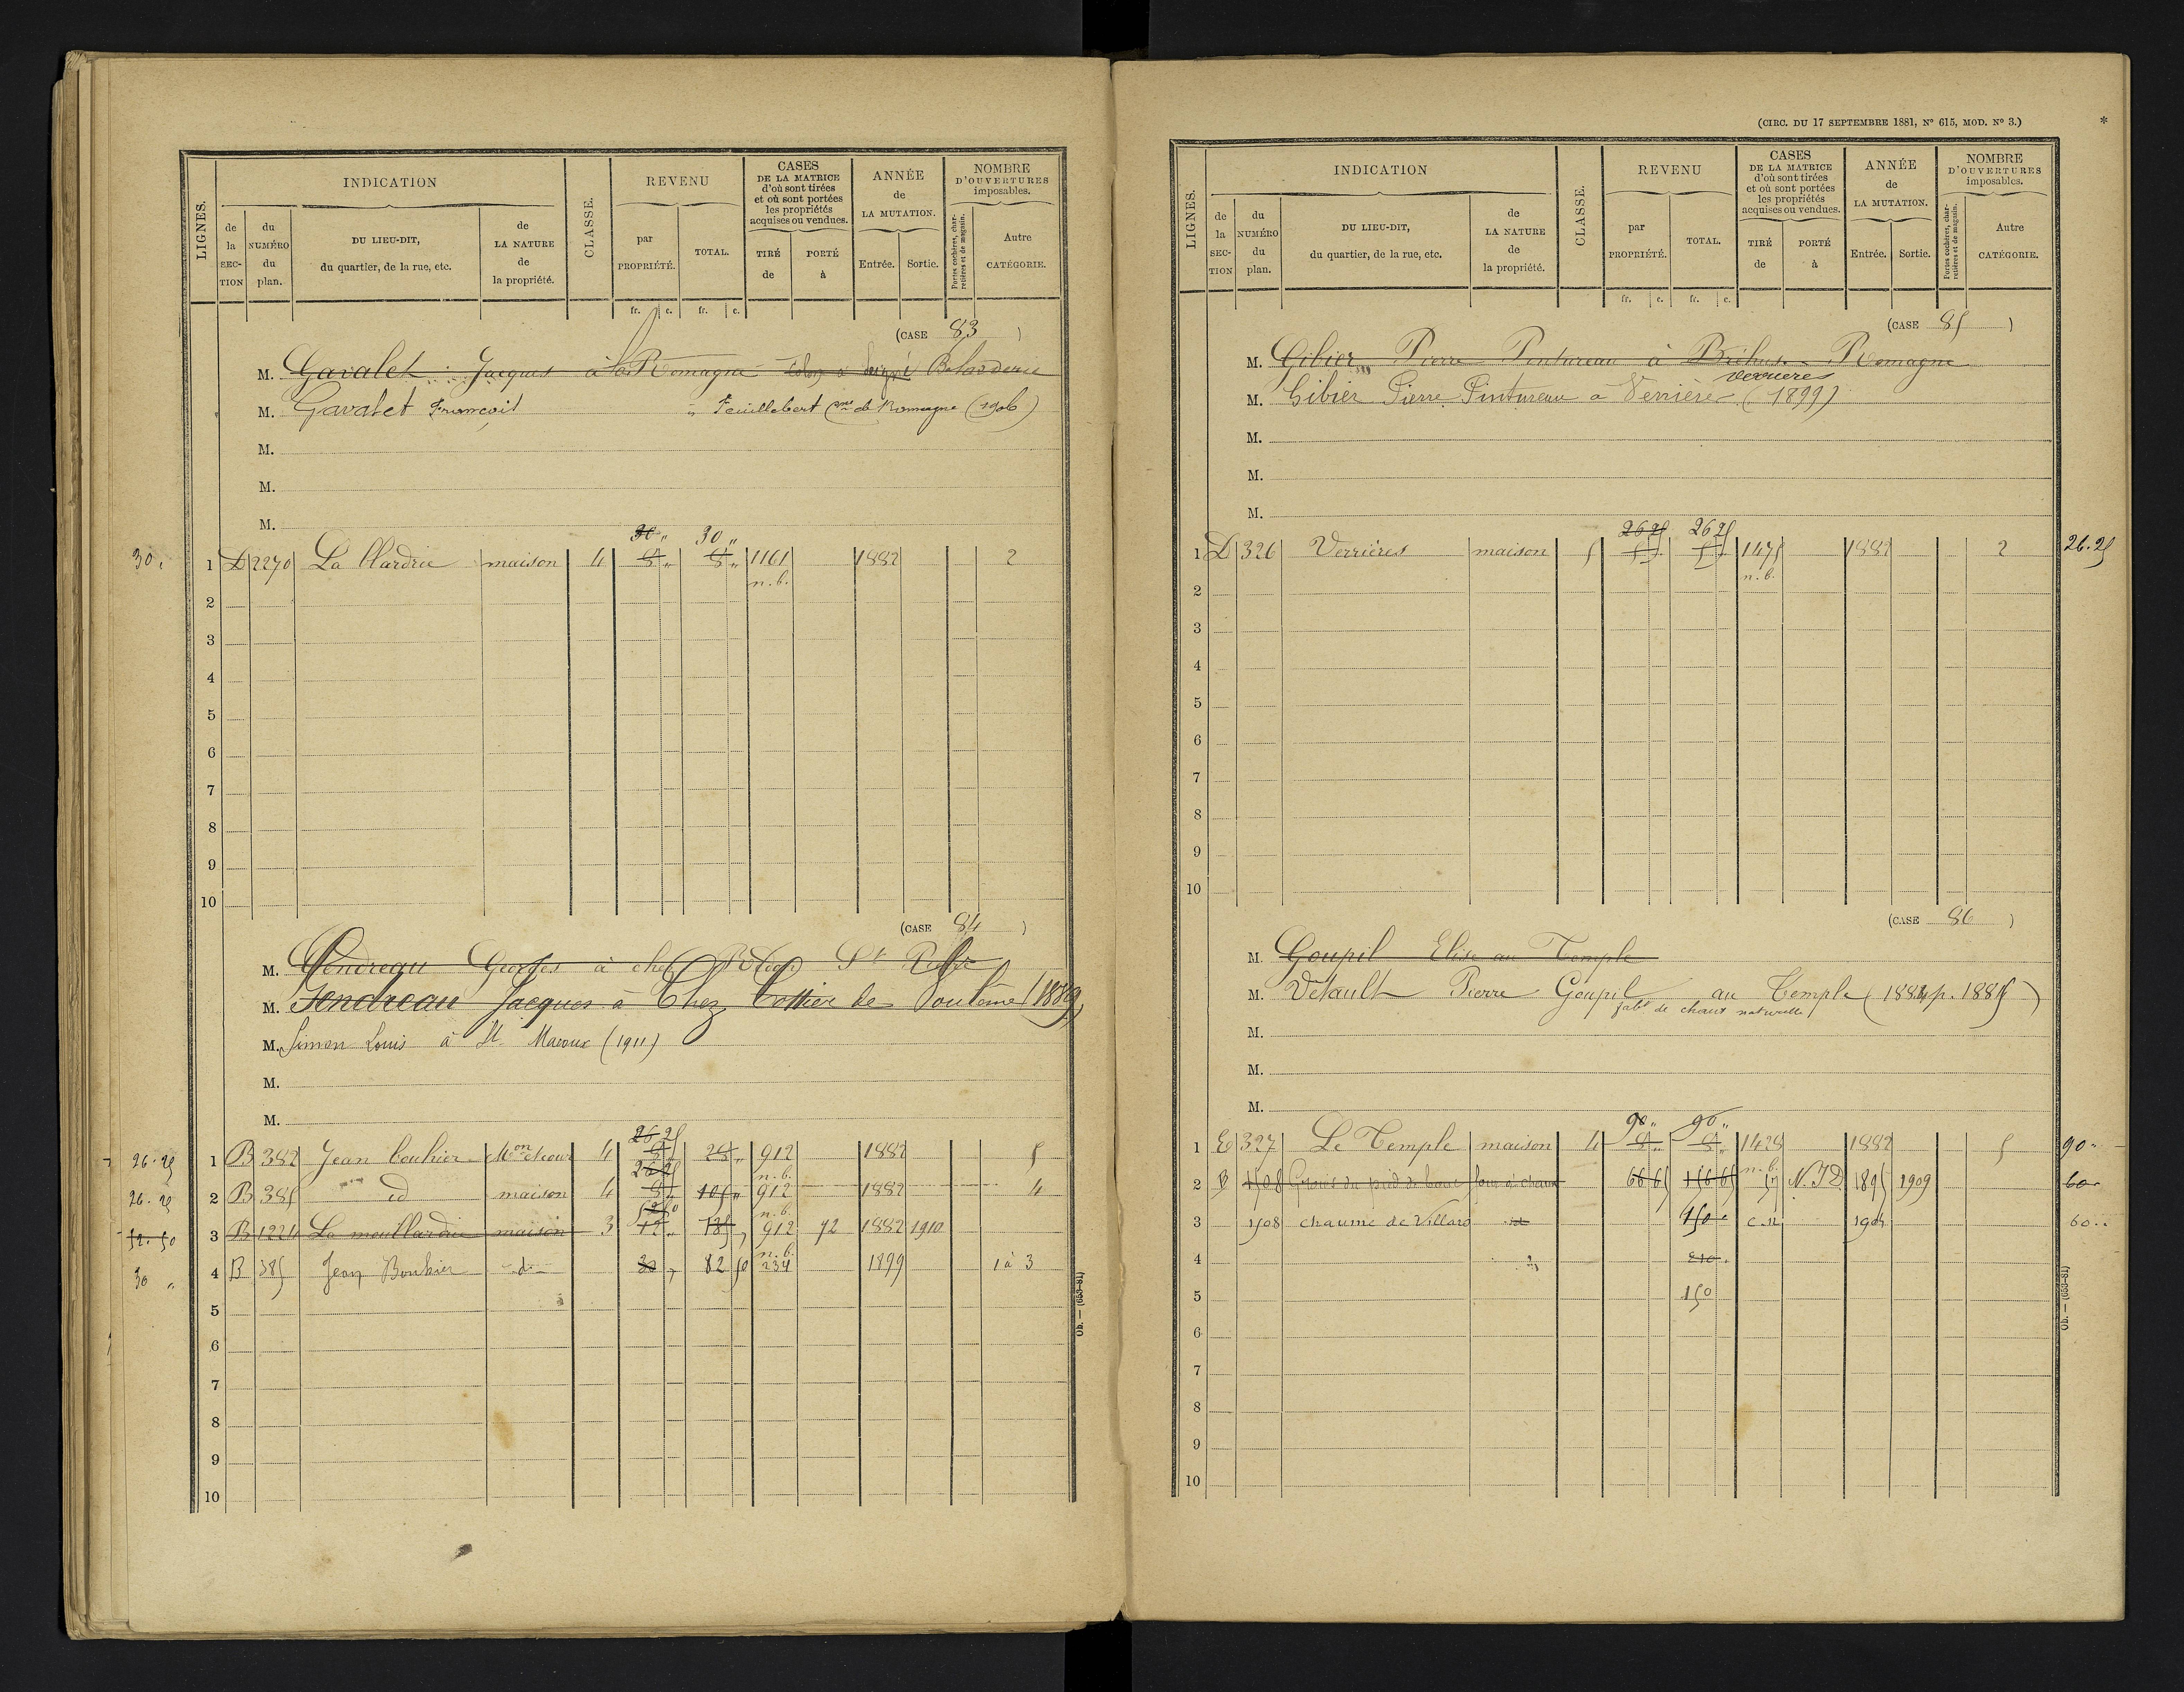 LIGNES.
INDICATION
de la SECTION
du NUMÉRO du plan.
DU LIEU-DIT, du quartier, de la rue, etc.
de LA NATURE de la propriété.
CLASSE.
REVENU
par PROPRIÉTÉ.
TOTAL.
CASES DE LA MATRICE d'où sont tirées et où sont portées les propriétés acquises ou vendues.
TIRÉ de
PORTÉ à
ANNÉE de LA MUTATION.
Entrée.
Sortie.
NOMBRE D'OUVERTURES imposables.
Portes cochères, charretières et de magasin.
Autre CATÉGORIE.
fr. c. fr. c.
(CASE 83 )
M. Gavalet Jacques à la Romagne
M. Gavalet François à Feuillebert cne de Romagne (1906)
M.
M.
M.
30 „ 30 „
30 „ 1 D 2270 maison 4 8 „ 8 „ 1161 1882 2
n. b.
2
3
4
5
6
7
8
9
10
(CASE 84 )
M. Gendreau Georges à chez
M. Gendreau Jacques à Chez (1889)
M. Simon Louis à St Macoux (1911)
M.
M.
26 25
26.25 1 B 382 Jean Bouhier Mon et cour 4 912 1882 5
26 25 n. b.
26.25 2 B 385 id maison 4 8 „ 105 „ 912 1882 4
52 50 n. b.
52.50 3 B 1224 La mouillardrie maison 3 12 „ 912 72 1882 1910
n. b.
30 „ 4 B 385 Jean Bouhier d 30 „ 82 50 234 1899 1 à 3
5
6
7
8
9
10
Ob. — (653–81)
(CIRC. DU 17 SEPTEMBRE 1881, N° 615, MOD. N° 3.)
*
LIGNES.
INDICATION
de la SECTION
du NUMÉRO du plan.
DU LIEU-DIT, du quartier, de la rue, etc.
de LA NATURE de la propriété.
CLASSE.
REVENU
par PROPRIÉTÉ.
TOTAL.
CASES DE LA MATRICE d'où sont tirées et où sont portées les propriétés acquises ou vendues.
TIRÉ de
PORTÉ à
ANNÉE de LA MUTATION.
Entrée.
Sortie.
NOMBRE D'OUVERTURES imposables.
Portes cochères, charretières et de magasin.
Autre CATÉGORIE.
fr. c. fr. c.
(CASE 85 )
M. Gibier Pierre Pintureau à Romagne
verrieres
M. Gibier Pierre Pintureau à Verrière (1899)
M.
M.
M.
26 25 26 25
1 D 326 Verrières maison 5 5 „ 5 „ 1475 1882 2 26.25
n. b.
2
3
4
5
6
7
8
9
10
(CASE 86 )
M. Goupil Elise au Temple
M. Détault Pierre Goupil au Temple (1884 p. 1885)
fabt de chaux naturelle
M.
M.
M.
90 „ 90 „
1 E 327 Le Temple maison 4 8 „ 8 „ 1428 1882 5 90 „
n. b.
2 B 1508 four à chaux 66 65 156 65 N. ID 1895 1909 60
3 1508 chaume de Villard id 150 c. n 1904 60 „
4 210 „
5 150
6
7
8
9
10
Ob. — (653–81)